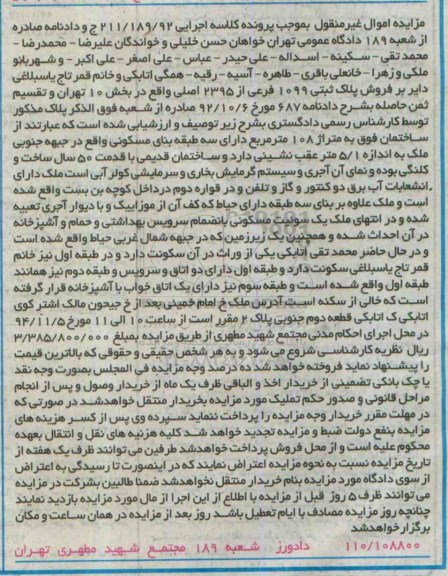 مزایده اموال غیرمنقول بموجب پرونده کلاسه اجرایی ۲۱۱/۱۸۹/۹۲ ج و دادنامه صادره
از شعبه ۱۸۹ دادگاه عمومی تهران خواهان حسن خلیلی و خواندگان علیرضا – محمدرضا –
محمد تقی – سکینه – اسداله – علی حیدر – عباس – علی اصغر – علی اکبر – و شهربانو
ملکی و زهرا – خانعلی باقری – طاهره – آسیه – رقیه – همگی اتابکی و خانم قمر تاج یاسبلاغی
دایر بر فروش پلاک ثبتی ۱۰۹۹ فرعی از ۲۳۹۵ اصلی واقع در بخش ۱۰ تهران و تقسیم
ثمن حاصله بشرح دادنامه ۶۸۷ مورخ ۹۲/۱۰/۶ صادره از شعبه فوق الذکر پلاک مذکور
توسط کارشناس رسمی دادگستری بشرح زیر توصیف و ارزشیابی شده است که عبارتند از
ساختمان فوق به متراژ ۱۰۸ مترمربع دارای سه طبقه بنای مسکونی واقع در جبهه جنوبی
ملک به اندازه ۵/۱ متر عقب نشینی دارد و ساختمان قدیمی با قدمت ۵۰ سال ساخت و
کلنگی بوده و نمای آن آجری و سیستم گرمایش بخاری و سرمایشی کولر آبی است ملک دارای
انشعابات آب برق دو کنتور و گاز و تلفن و در قواره دوم درداخل کوچه بن بست واقع شده
است و ملک علاوه بر بنای سه طبقه دارای حیاط که کف آن از موزاییک و با دیوار آجری تعبیه
شده و در انتهای ملک یک سوئیت مسکونی بانضمام سرویس بهداشتی و حمام و آشپزخانه
در آن احداث شده و همچنین یک زیرزمین که در جبهه شمال غربی حیاط واقع شده است
و در حال حاضر محمد تقی اتابکی یکی از وراث در آن سکونت دارد و در طبقه اول نیز خانم
قمر تاج یاسبلاغی سکونت دارد و طبقه اول دارای دو اتاق و سرویس و طبقه دوم نیز همانند
طبقه اول واقع شده است و طبقه سوم نیز دارای یک اتاق خواب با آشپزخانه قرار گرفته
است که خالی از سکنه است آدرس ملک خ امام خمینی بعد از خ جیحون مالک اشتر کوی
اتابکی ک اتابکی قطعه دوم جنوبی پلاک ۲ مقرر است از ساعت ۱۰ الی ۱۱ مورخ ۹۴/۱۱/۵
در محل اجرای احکام مدنی مجتمع شهید مطهری از طریق مزایده بمبلغ ۳/۳۸۵/۸۰۰/۰۰۰
ریال نظریه کارشناسی شروع می شود و به هر شخص حقیقی و حقوقی که بالاترین قیمت
را پیشنهاد نماید فروخته خواهد شد ده درصد وجه مزایده فی المجلس بصورت وجه نقد
یا چک بانکی تضمینی از خریدار اخذ و الباقی ظرف یک ماه از خریدار وصول و پس از انجام
مراحل قانونی و صدور حکم تملیک مورد مزایده بخریدار منتقل خواهدشد در صورتی که
در مهلت مقرر خریدار وجه مزایده را پرداخت ننماید سپرده وی پس از کسر هزینه های
مزایده بنفع دولت ضبط و مزایده تجدید خواهد شد کلیه هزنیه های نقل و انتقال بعهده
محکوم علیه است و از محل فروش پرداخت خواهدشد طرفین می توانند ظرف یک هفته از
تاریخ مزایده نسبت به نحوه مزایده اعتراض نمایند که در اینصورت تا رسیدگی به اعتراض
از سوی دادگاه مورد مزایده بنام خریدار منتقل نخواهدشد ضمنا طالبین بشرکت در مزایده
می توانند ظرف ۵ روز قبل از مزایده با اطلاع از این اجرا از مال مورد مزایده بازدید نمایند
چنانچه روز مزایده مصادف با ایام تعطیل باشد روز بعد از مزایده در همان ساعت و مکان
برگزار خواهدشد
۱۱۰/۱۰۸۸۰۰ دادورز شعبه ۱۸۹ مجتمع شهید مطهری تهران